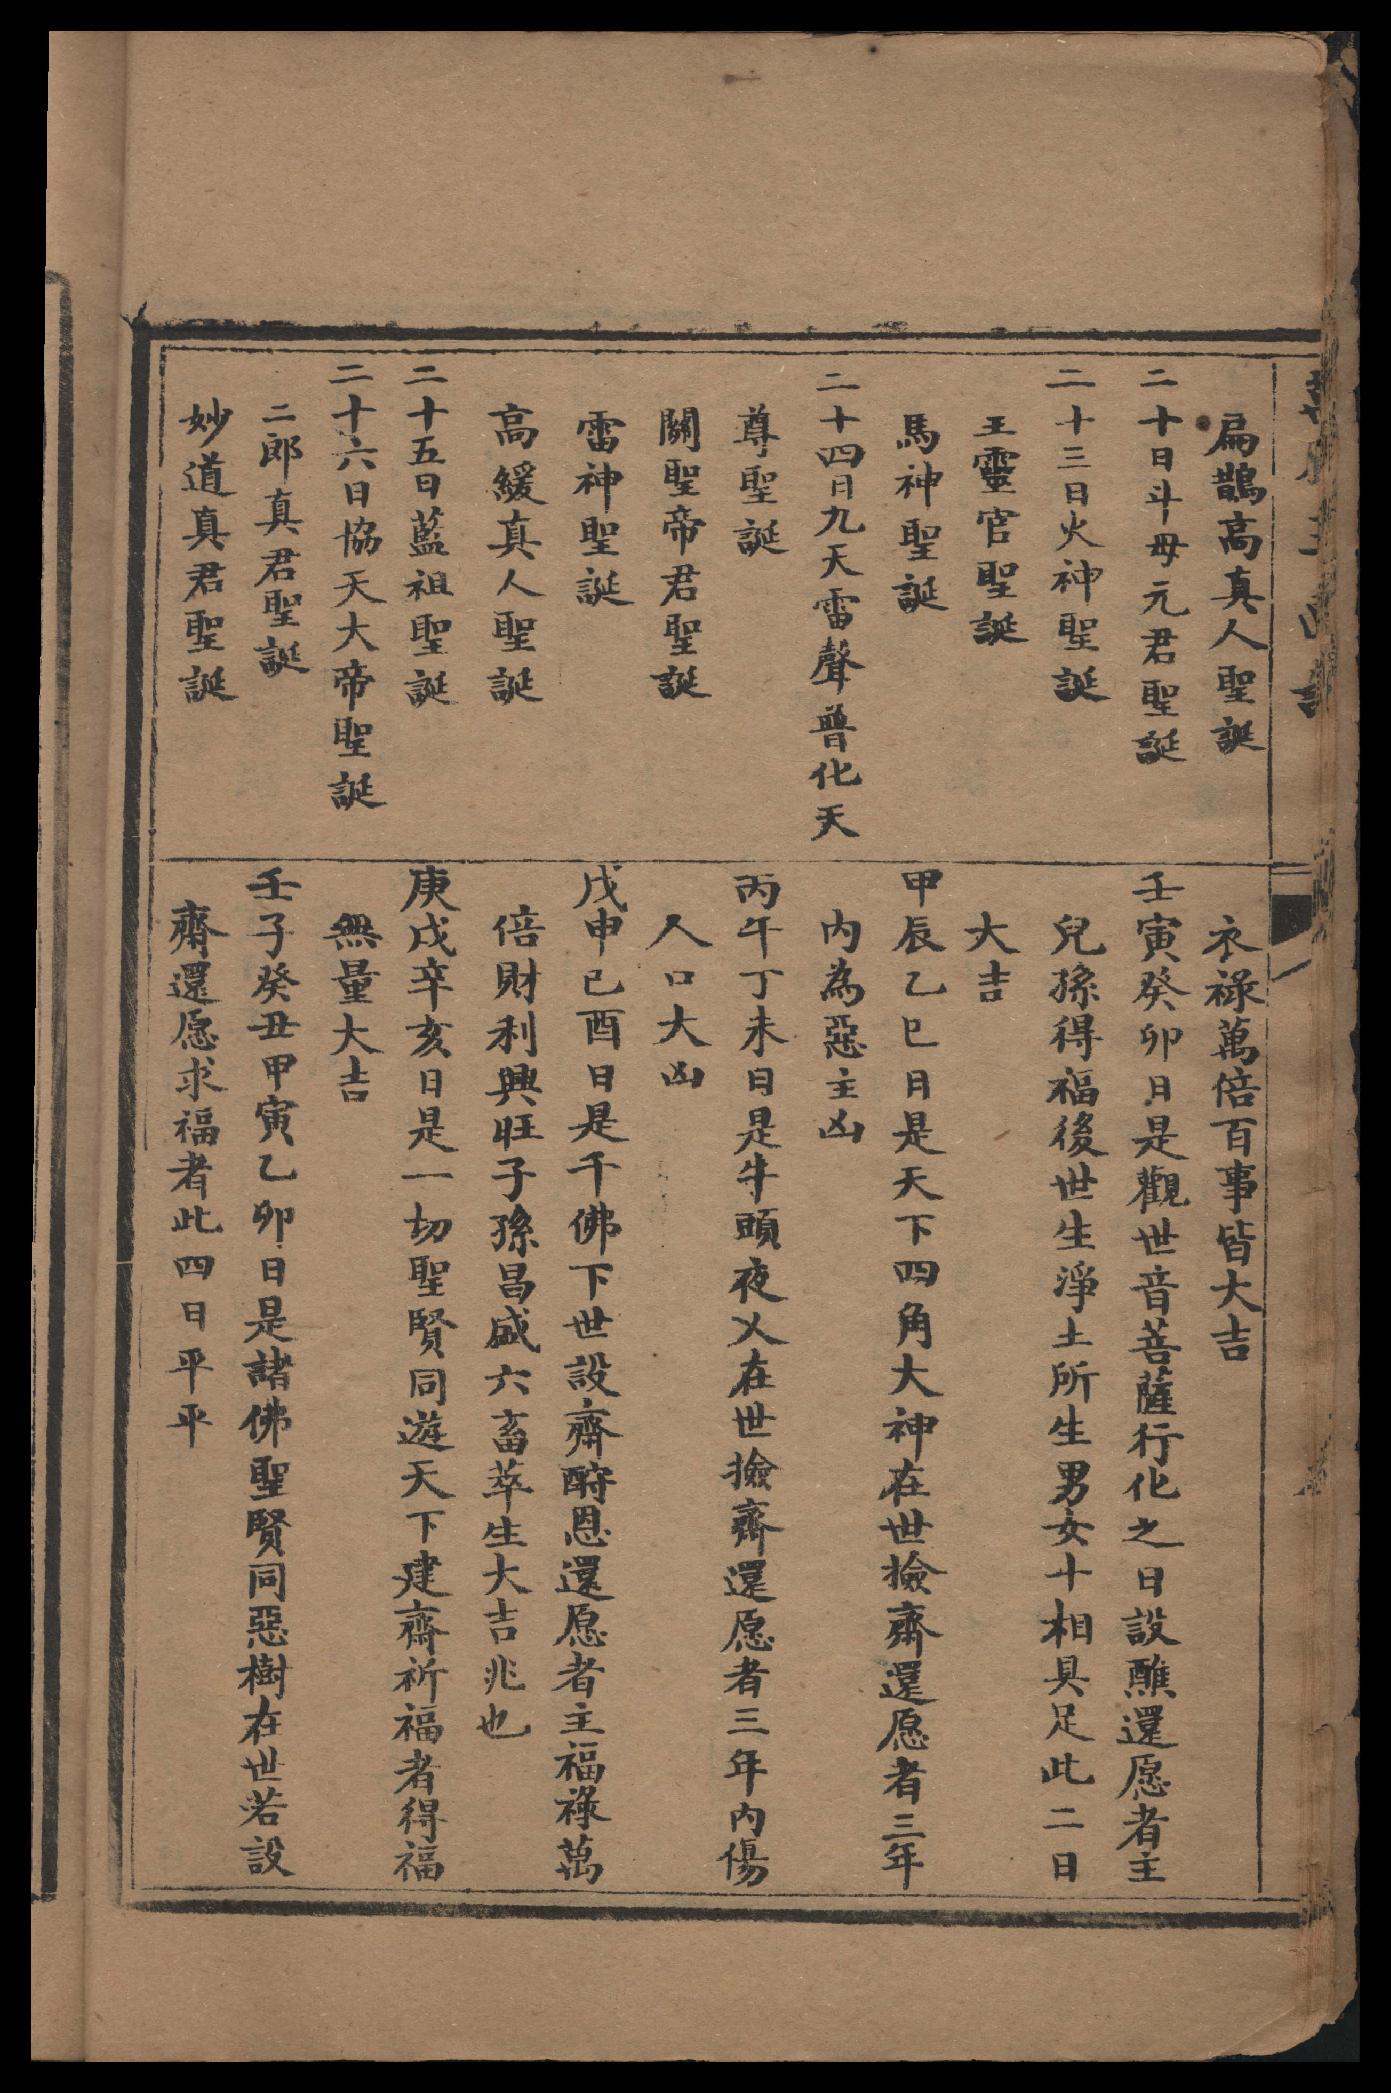 扁鵲高真人聖誕
二十日斗母元君聖誕
二十三日火神聖誕
王靈官聖誕
馬神聖誕
二十四日九天雷聲普化天
尊聖誕
關聖帝君聖誕
雷神聖誕
高緩真人聖誕
二十五日藍祖聖誕
二十六日協天大帝聖誕
二郎真君聖誕
妙道真君聖誕
衣祿萬倍百事皆大吉
壬寅癸卯日是觀世音菩薩行化之日設醮還愿者主
兒孫得福後世生淨土所生男女十相具足此二日
大吉
甲辰乙巳日是天下四角大神在世撿齋還愿者三年
內為惡主凶
丙午丁未日是牛頭夜乂在世撿齋還愿者三年內傷
人口大凶
戊申己酉日是千佛下世設齋酧恩還愿者主福祿萬
倍財利興旺子孫昌盛六畜萃生大吉兆也
庚戌辛亥日是一切聖賢同遊天下建齋祈福者得福
無量大吉
壬子癸丑甲寅乙卯日是諸佛聖賢同惡樹在世若設
齋還愿求福者此四日平平